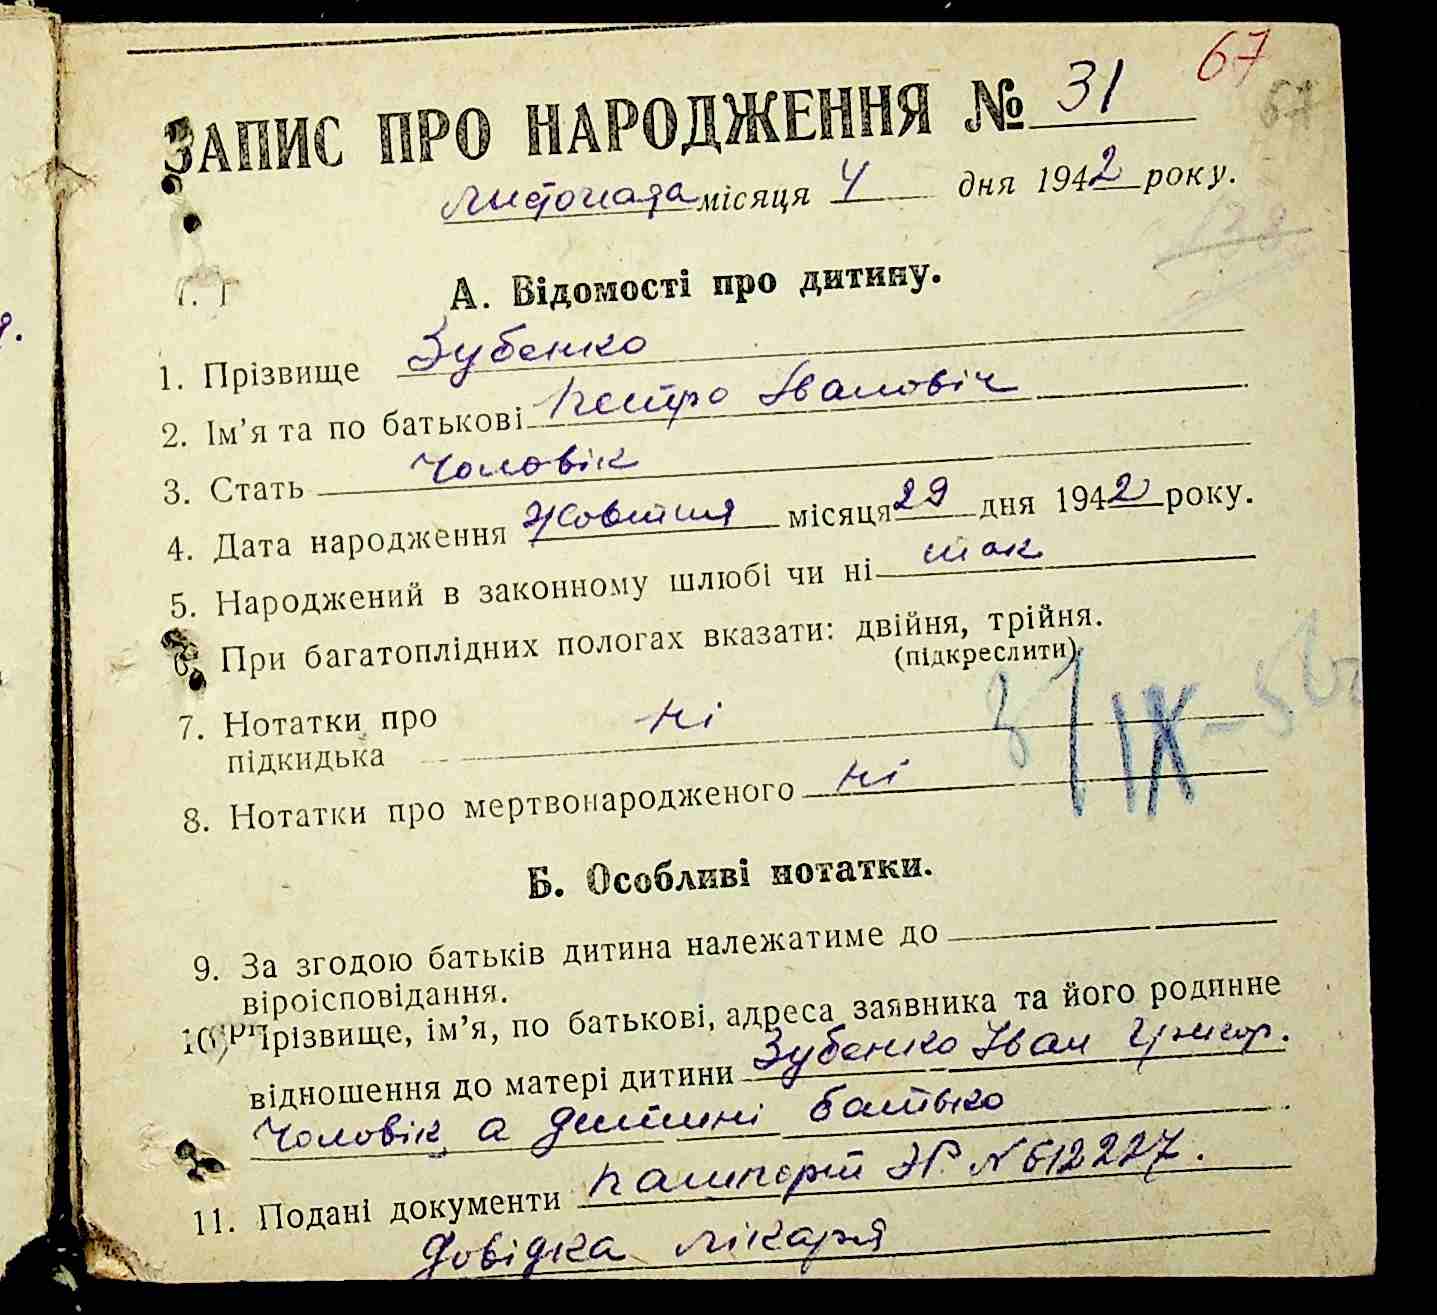 67
ЗАПИС ПРО НАРОДЖЕННЯ № 31
67
листопада місяця 4 дня 1942 року.
138
А. Відомості про дитину.
1. Прізвище Зубенко
2. Ім'я та по батькові Петро Іванович
3. Стать Чоловік
4. Дата народження Жовтня місяця 29 дня 1942 року.
5. Народжений в законному шлюбі чи ні так
6. При багатоплідних пологах вказати: двійня, трійня.
(підкреслити)
7. Нотатки про
підкидька ні
8. Нотатки про мертвонародженого ні
Б. Особливі нотатки.
9. За згодою батьків дитина належатиме до
віроісповідання.
10. Прізвище, ім'я, по батькові, адреса заявника та його родинне
відношення до матері дитини Зубенко Іван Григор.
Чоловік а дитині батько
11. Подані документи пашпорт ЭР N 612227.
Довідка лікаря